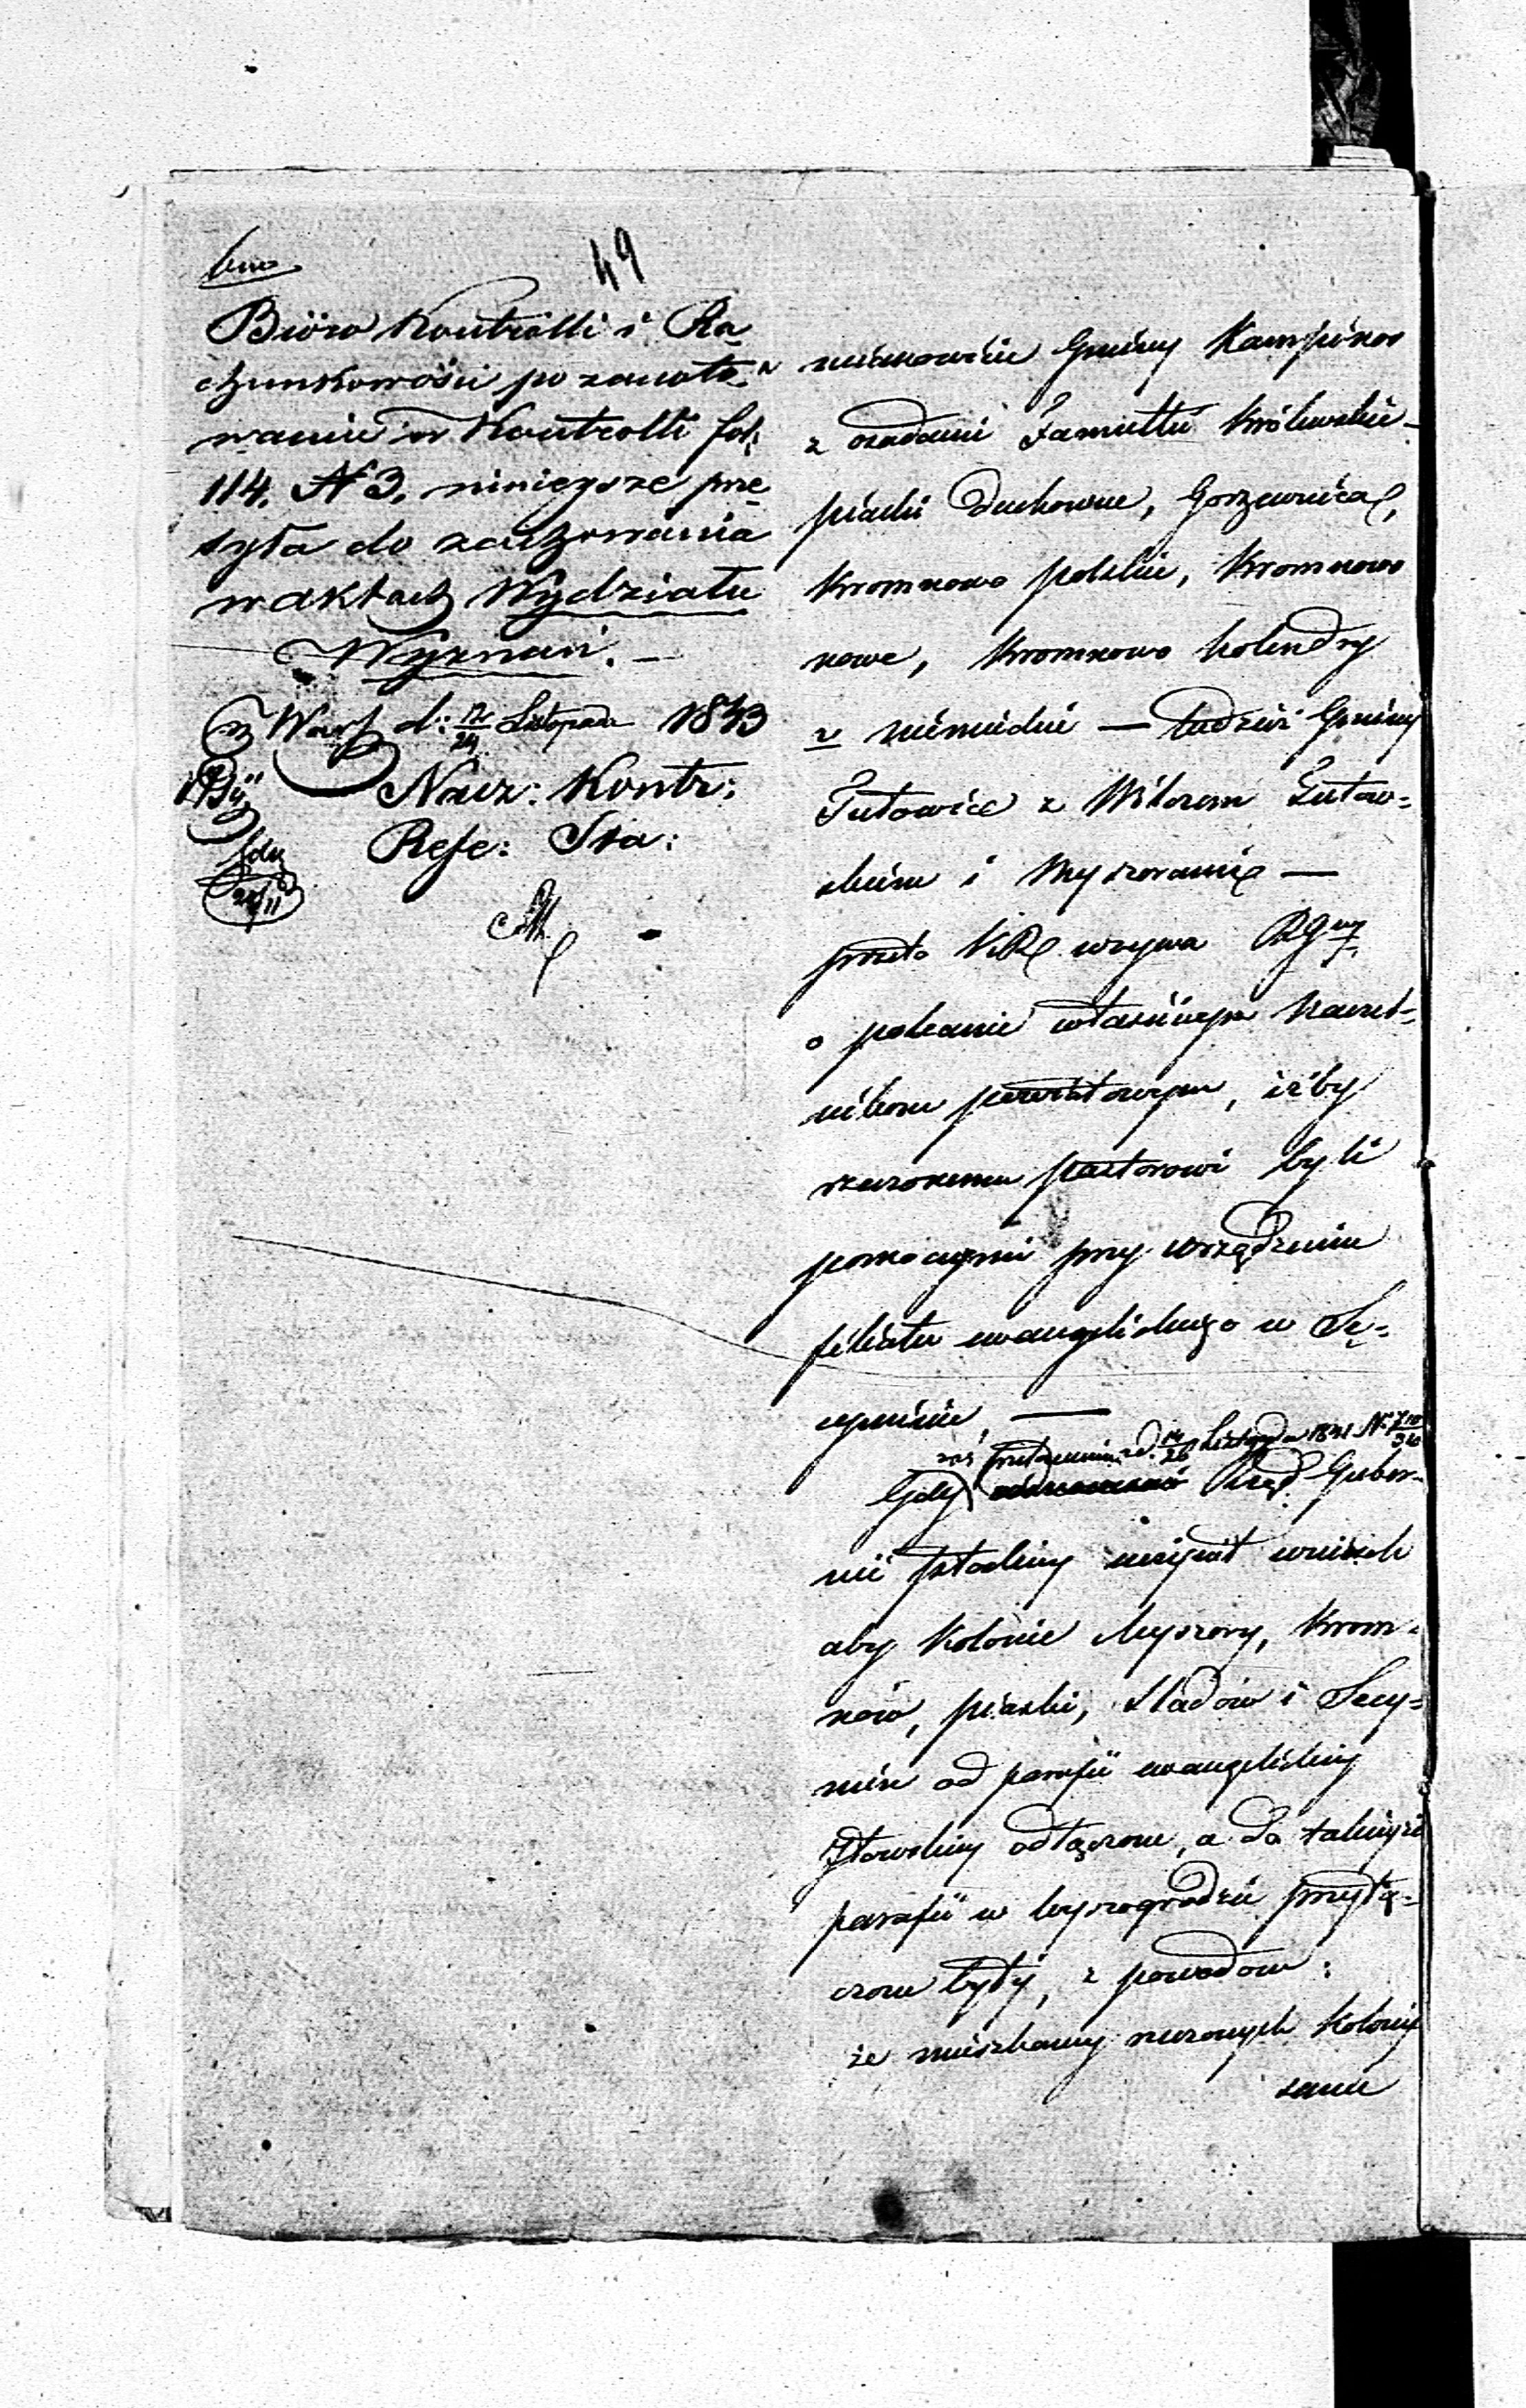 49
Biuro Kontrolli i Ra
chunkowości po zanoto
waniu w Kontrolli fol:
114. N 3. niniejsze prze
syła do zachowania
w aktach Wydziału
Wyznań. —
z Warsz d: 12/24 Listopada 1843
Nacz: Kontr:
Refe: Sta:
mianowicie Gminy Kampinos
z osadami Famułki Królewskie
piaski Duchowne, Gorzewnica,
Kromnowo polskie, Kromnowo
nowe, Kromnowo holendry
v niemieckie — tudzież Gminy
Tułowice z Wilczem Tułow=
skiem i Wyszorami —
przeto KR wzywa RGny
o polecenie właściwym Naczel=
nikom powiatowym, iżby
rzeczonemu pastorowi byli
pomocnymi przy urządzeniu
filiału ewangelickiego w Se=
cyminie, —
zaś przedstawieniem z d. 14/26 Listopada 1841 N.
Gdy Rząd Guber=
nii płockiej uczynił wniosek
aby kolonie Wyszory, Krom=
nów, piaski, Śladów i Secy=
min od parafii ewangelickiej
Iłowskiej odłączone, a do takiejże
parafii w Wyszogrodzie przyłą=
czone były, z powodów:
że mieszkańcy rzeczonych kolonij
sami